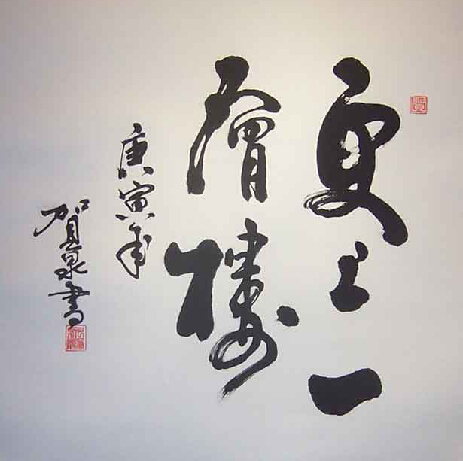 更上一
層樓
庚寅年
賀泉書